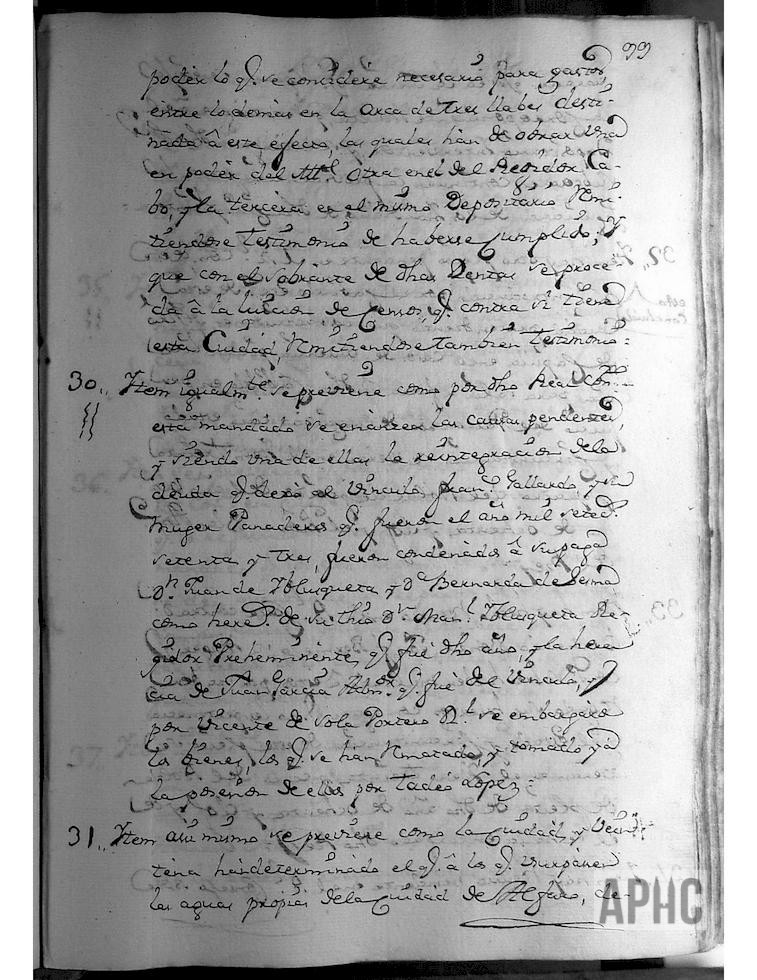 99
poder lo q.e se considere necesario para gastos,
entre lo demas en la Arca de tres llabes desti-
nada â este efecto, las quales han de obrar Una
en poder del Alc.e otra en el del Regidor Ca-
bo, y la tercera en el mismo Depositario Remi-
tiendose Testimonio de haberse Cumplido; Y
que con el sobrante de dhas Rentas se proce-
da â la luicion de Censos, q.e contra si tiene
esta Ciudad, Remitiendose tambien testimonio:
30., Ytem igualm.te se previene como por dho Real
esta mandado se enancen las causas pendentes,
y siendo una de ellas la reintegracion dela
deuda q.e dexó al Vinculo, Fran.co Gallardo y su
Muger Panaderos q.e fueron el año mil setec.s
setenta y tres, fueron condenados â su paga
D.n Juan de Yblusqueta y D.a Bernarda de Lesma
como hered.s de su thio D.n Man.l Yblusqueta Re-
gidor Preheminente, q.e fué dho año, y la heren
cia de Juan Garcia Adm.or q.e fué del Vinculo, y
por Vicente de Sola Portero R.l se embargaro
los bienes, los q.e se han Rematado, y tomado ya
la posesion de ellos por Tadeo Lopez.
31., Ytem asi mismo se previene como la Ciudad y Vein-
tena han determinado el q.e â los q.e Usurpasen
las aguas propias dela Ciudad de Alfaro, de-
APHC